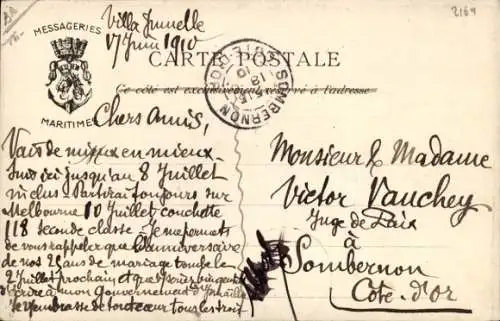 2169
MESSAGERIES
MARITIMES
Villa Jumelle
17 Juin 1910
CARTE POSTALE
Ce côté est exclusivement réservé à l'adresse
SOMBERNON
CÔTE-D'OR
18
10
Chers Amis,
Vais de mieux en mieux.
Suis ici jusqu'au 8 Juillet
inclus. Partirai toujours sur
Melbourne 10 Juillet couchette
118 seconde classe. Je me permets
de vous rappeler que l'anniversaire
de nos 25 ans de mariage tombe le
2 Juillet prochain et que
écrire à mon Gouvernement
Je vous embrasse de tout cœur tous les trois
Monsieur & Madame
Victor Vauchey
Juge de Paix
à
Sombernon
Côte. d'Or